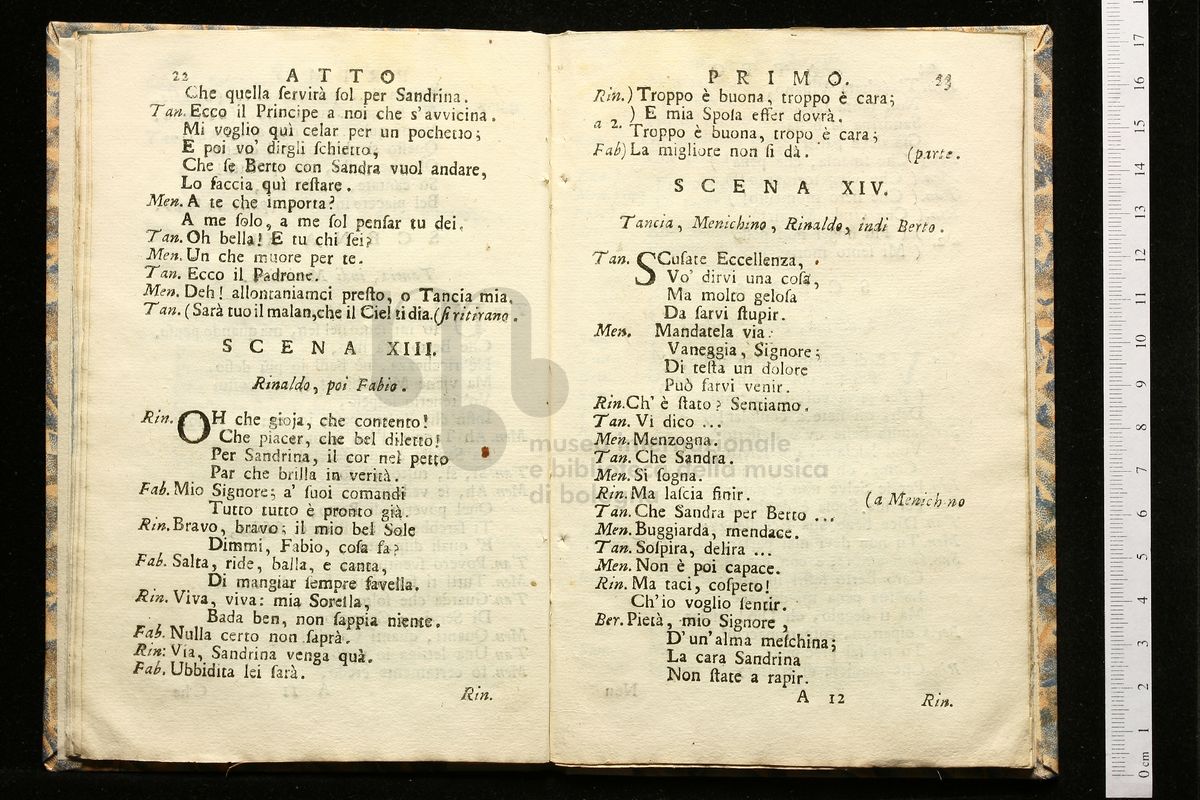 22 ATTO
Che quella ſervirà ſol per Sandrina.
Tan. Ecco il Principe a noi che s'avvicina.
Mi voglio quì celar per un pochetto;
E poi vo' dirgli ſchietto,
Che ſe Berto con Sandra vuol andare,
Lo faccia quì reſtare.
Men. A te che importa?
A me ſolo, a me ſol penſar tu dei.
Tan. Oh bella! E tu chi ſei?
Men. Un che muore per te.
Tan. Ecco il Padrone.
Men. Deh! allontaniamci preſto, o Tancia mia.
Tan. (Sarà tuo il malan, che il Ciel ti dia. (ſi ritirano.
SCENA XIII.
Rinaldo, poi Fabio.
Rin. OH che gioja, che contento!
Che piacer, che bel diletto!
Per Sandrina, il cor nel petto
Par che brilla in verità.
Fab. Mio Signore; a' ſuoi comandi
Tutto tutto è pronto già.
Rin. Bravo, bravo; il mio bel Sole
Dimmi, Fabio, coſa fa?
Fab. Salta, ride, balla, e canta,
Di mangiar ſempre favella.
Rin. Viva, viva: mia Sorella,
Bada ben, non ſappia niente.
Fab. Nulla certo non ſaprà.
Rin: Via, Sandrina venga quà.
Fab. Ubbidita lei ſarà.
Rin.
PRIMO. 33
Rin.) Troppo è buona, troppo è cara;
a 2. ) E mia Spoſa eſſer dovrà.
Troppo è buona, tropo è cara;
Fab) La migliore non ſi dà. (parte.
SCENA XIV.
Tancia, Menichino, Rinaldo, indi Berto.
Tan. SCuſate Eccellenza,
Vo' dirvi una coſa,
Ma molto geloſa
Da farvi ſtupir.
Men. Mandatela via:
Vaneggia, Signore;
Di teſta un dolore
Può farvi venir.
Rin. Ch' è ſtato? Sentiamo.
Tan. Vi dico ...
Men. Menzogna.
Tan. Che Sandra.
Men. Si ſogna.
Rin. Ma laſcia finir. (a Menich no
Tan. Che Sandra per Berto ...
Men. Buggiarda, mendace.
Tan. Soſpira, delira ...
Men. Non è poi capace.
Rin. Ma taci, coſpeto!
Ch'io voglio ſentir.
Ber. Pietà, mio Signore,
D'un'alma meſchina;
La cara Sandrina
Non ſtate a rapir.
A 12 Rin.
museo internazionale
e biblioteca della musica
di bologna